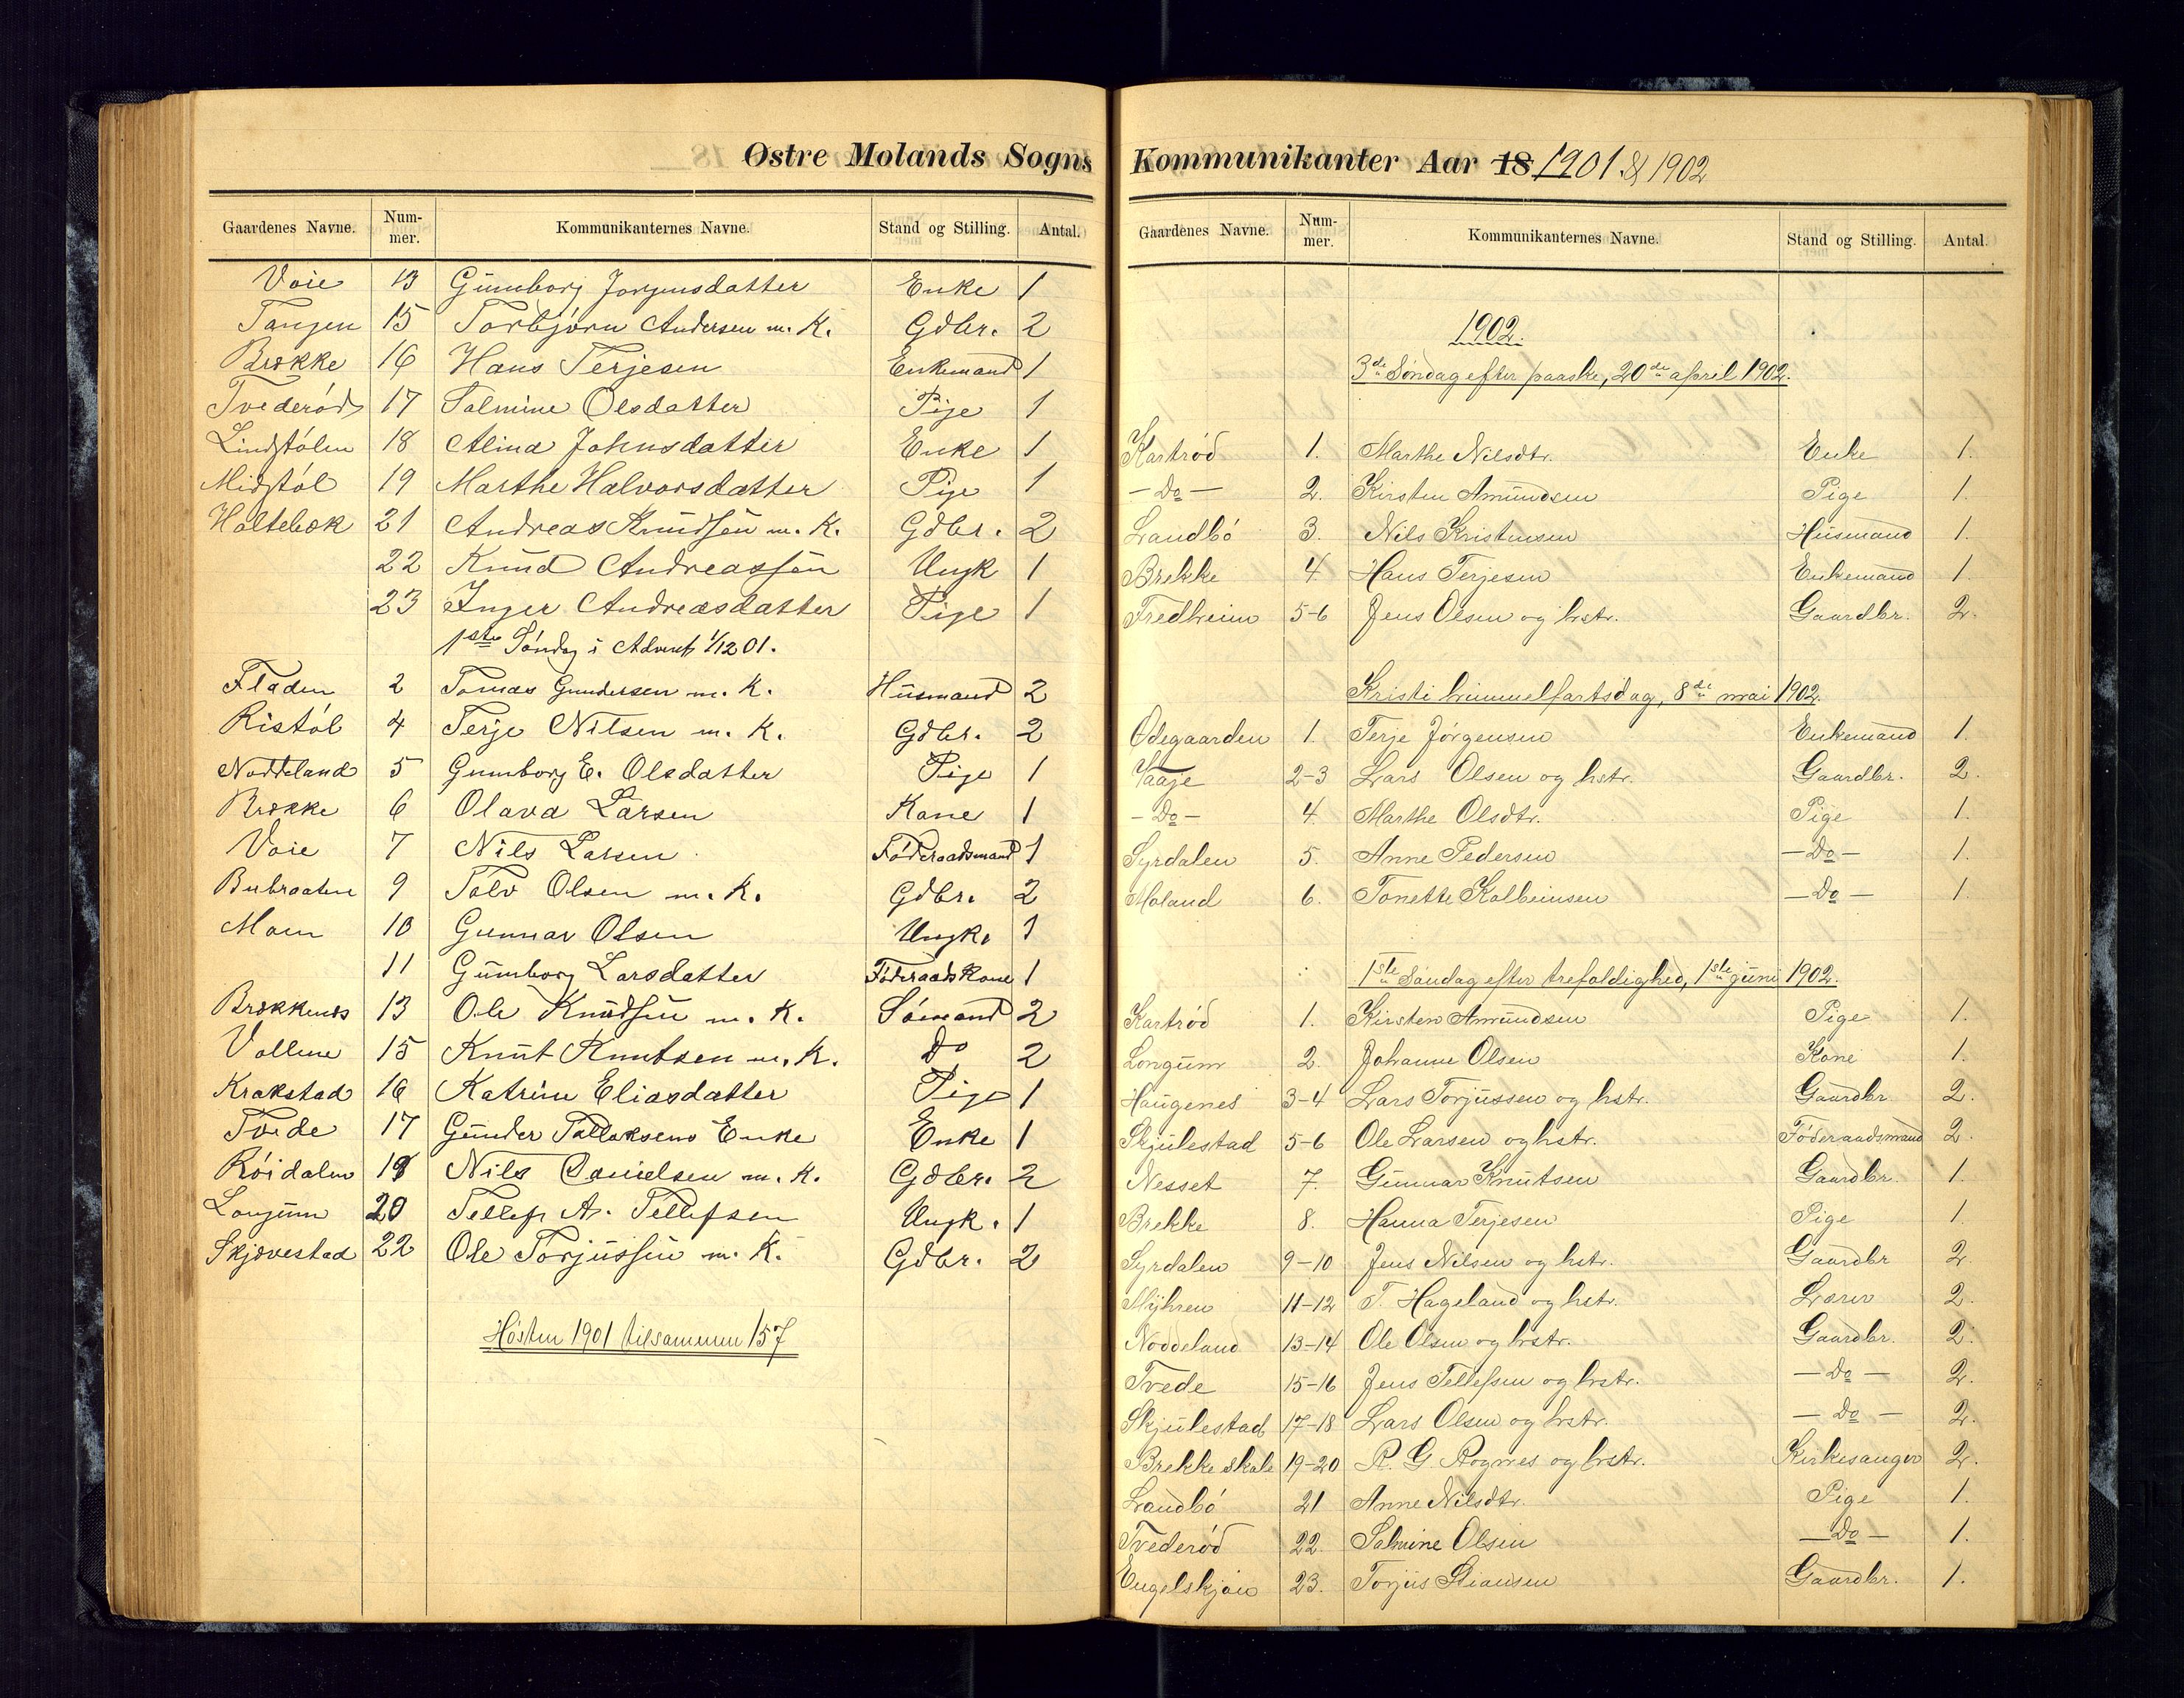 Østre Molands Sogns
Gaardenes Navne. Num-mer. Kommunikanternes Navne. Stand og Stilling. Antal.
Voie 13 Gunborg Jorgensdatter Enke 1
Tangen 15 Torbjørn Andersen m. K. Gdbr. 2
Brække 16 Hans Terjesen Enkemand 1
Tvederød 17 Salmine Olsdatter Pige 1
Lindstølen 18 Alina Johnsdatter Enke 1
Midtstøl 19 Marthe Halvorsdatter Pige 1
Holtebæk 21 Andreas Knudsøn m. K. Gdbr. 2
22 Knud Andreassøn Ungk 1
23 Inger Andreasdatter Pige 1
1ste Søndag i Advent 1/12 01.
Fladen 2 Tomas Gundersen m. K. Husmand 2
Ristøl 4 Terje Nilsen m. K. Gdbr. 2
Noddeland 5 Gunborg E. Olsdatter Pige 1
Brække 6 Olava Larsen Kone 1
Voie 7 Nils Larsen Føderaadsmand 1
Bubraaten 9 Talv Olsen m. K. Gdbr. 2
Moen 10 Gunnar Olsen Ungk. 1
11 Gunborg Larsdatter Føderaadskone 1
Brækkenes 13 Ole Knudsen m. K. Sømand 2
Vollene 15 Knut Knutsen m. K. Do 2
Krakstad 16 Katrine Eliasdatter Pige 1
Tvede 17 Gunder Tallaksens Enke Enke 1
Røidalen 19 Nils Danielsen m. K. Gdbr. 2
Longum 20 Tellef A. Tellefsen Ungk. 1
Skjøvestad 22 Ole Torjussen m. K. Gdbr. 2
Høsten 1901 tilsammen 157
Kommunikanter Aar 18 1901 & 1902
Gaardenes Navne. Num-mer. Kommunikanternes Navne. Stand og Stilling. Antal.
1902.
3die Søndag efter paaske, 20de april 1902.
Kartrød 1. Marthe Nilsdtr. Enke 1.
— Do — 2. Kirsten Amundsen Pige 1.
Landbø 3. Nils Kristensen Husmand 1.
Brekke 4. Hans Terjesen Enkemand 1.
Fredheim 5-6 Jens Olsen og hstr. Gaardbr. 2.
Kristi himmelfartsdag, 8de mai 1902.
Ødegaarden 1. Terje Jørgensen Enkemand 1.
Vaaje 2-3 Lars Olsen og hstr. Gaardbr. 2.
— Do — 4. Marthe Olsdtr. Pige 1.
Syrdalen 5. Anne Pedersen — Do — 1.
Moland 6. Tonette Kolbeinsen — Do — 1.
1ste Søndag efter trefoldighed, 1ste juni 1902.
Kartrød 1. Kirsten Amundsen Pige 1.
Longum 2. Johanne Olsen Kone 1.
Haugenes 3-4 Lars Torjussen og hstr. Gaardbr. 2.
Skjulestad 5-6 Ole Larsen og hstr. Føderaadsmand 2.
Nesset 7. Gunnar Knutsen Gaardbr. 1.
Brekke 8. Hanna Terjesen Pige 1.
Syrdalen 9-10 Jens Nilsen og hstr. Gaardbr 2.
Myhren 11-12 T. Hageland og hstr. Lærer 2.
Noddeland 13-14 Ole Olsen og hstr. Gaardbr. 2.
Tvede 15-16 Jens Tellefsen og hstr. — Do — 2.
Skjulestad 17-18 Lars Olsen og hstr. — Do — 2.
Brekke skole 19-20 R. G. Rognes og hstr. Kirkesanger 2.
Landbø 21 Anne Nilsdtr. Pige 1.
Tvederød 22. Salmine Olsen — Do — 1.
Engelskjøn 23. Torjus Stiansen Gaardbr. 1.